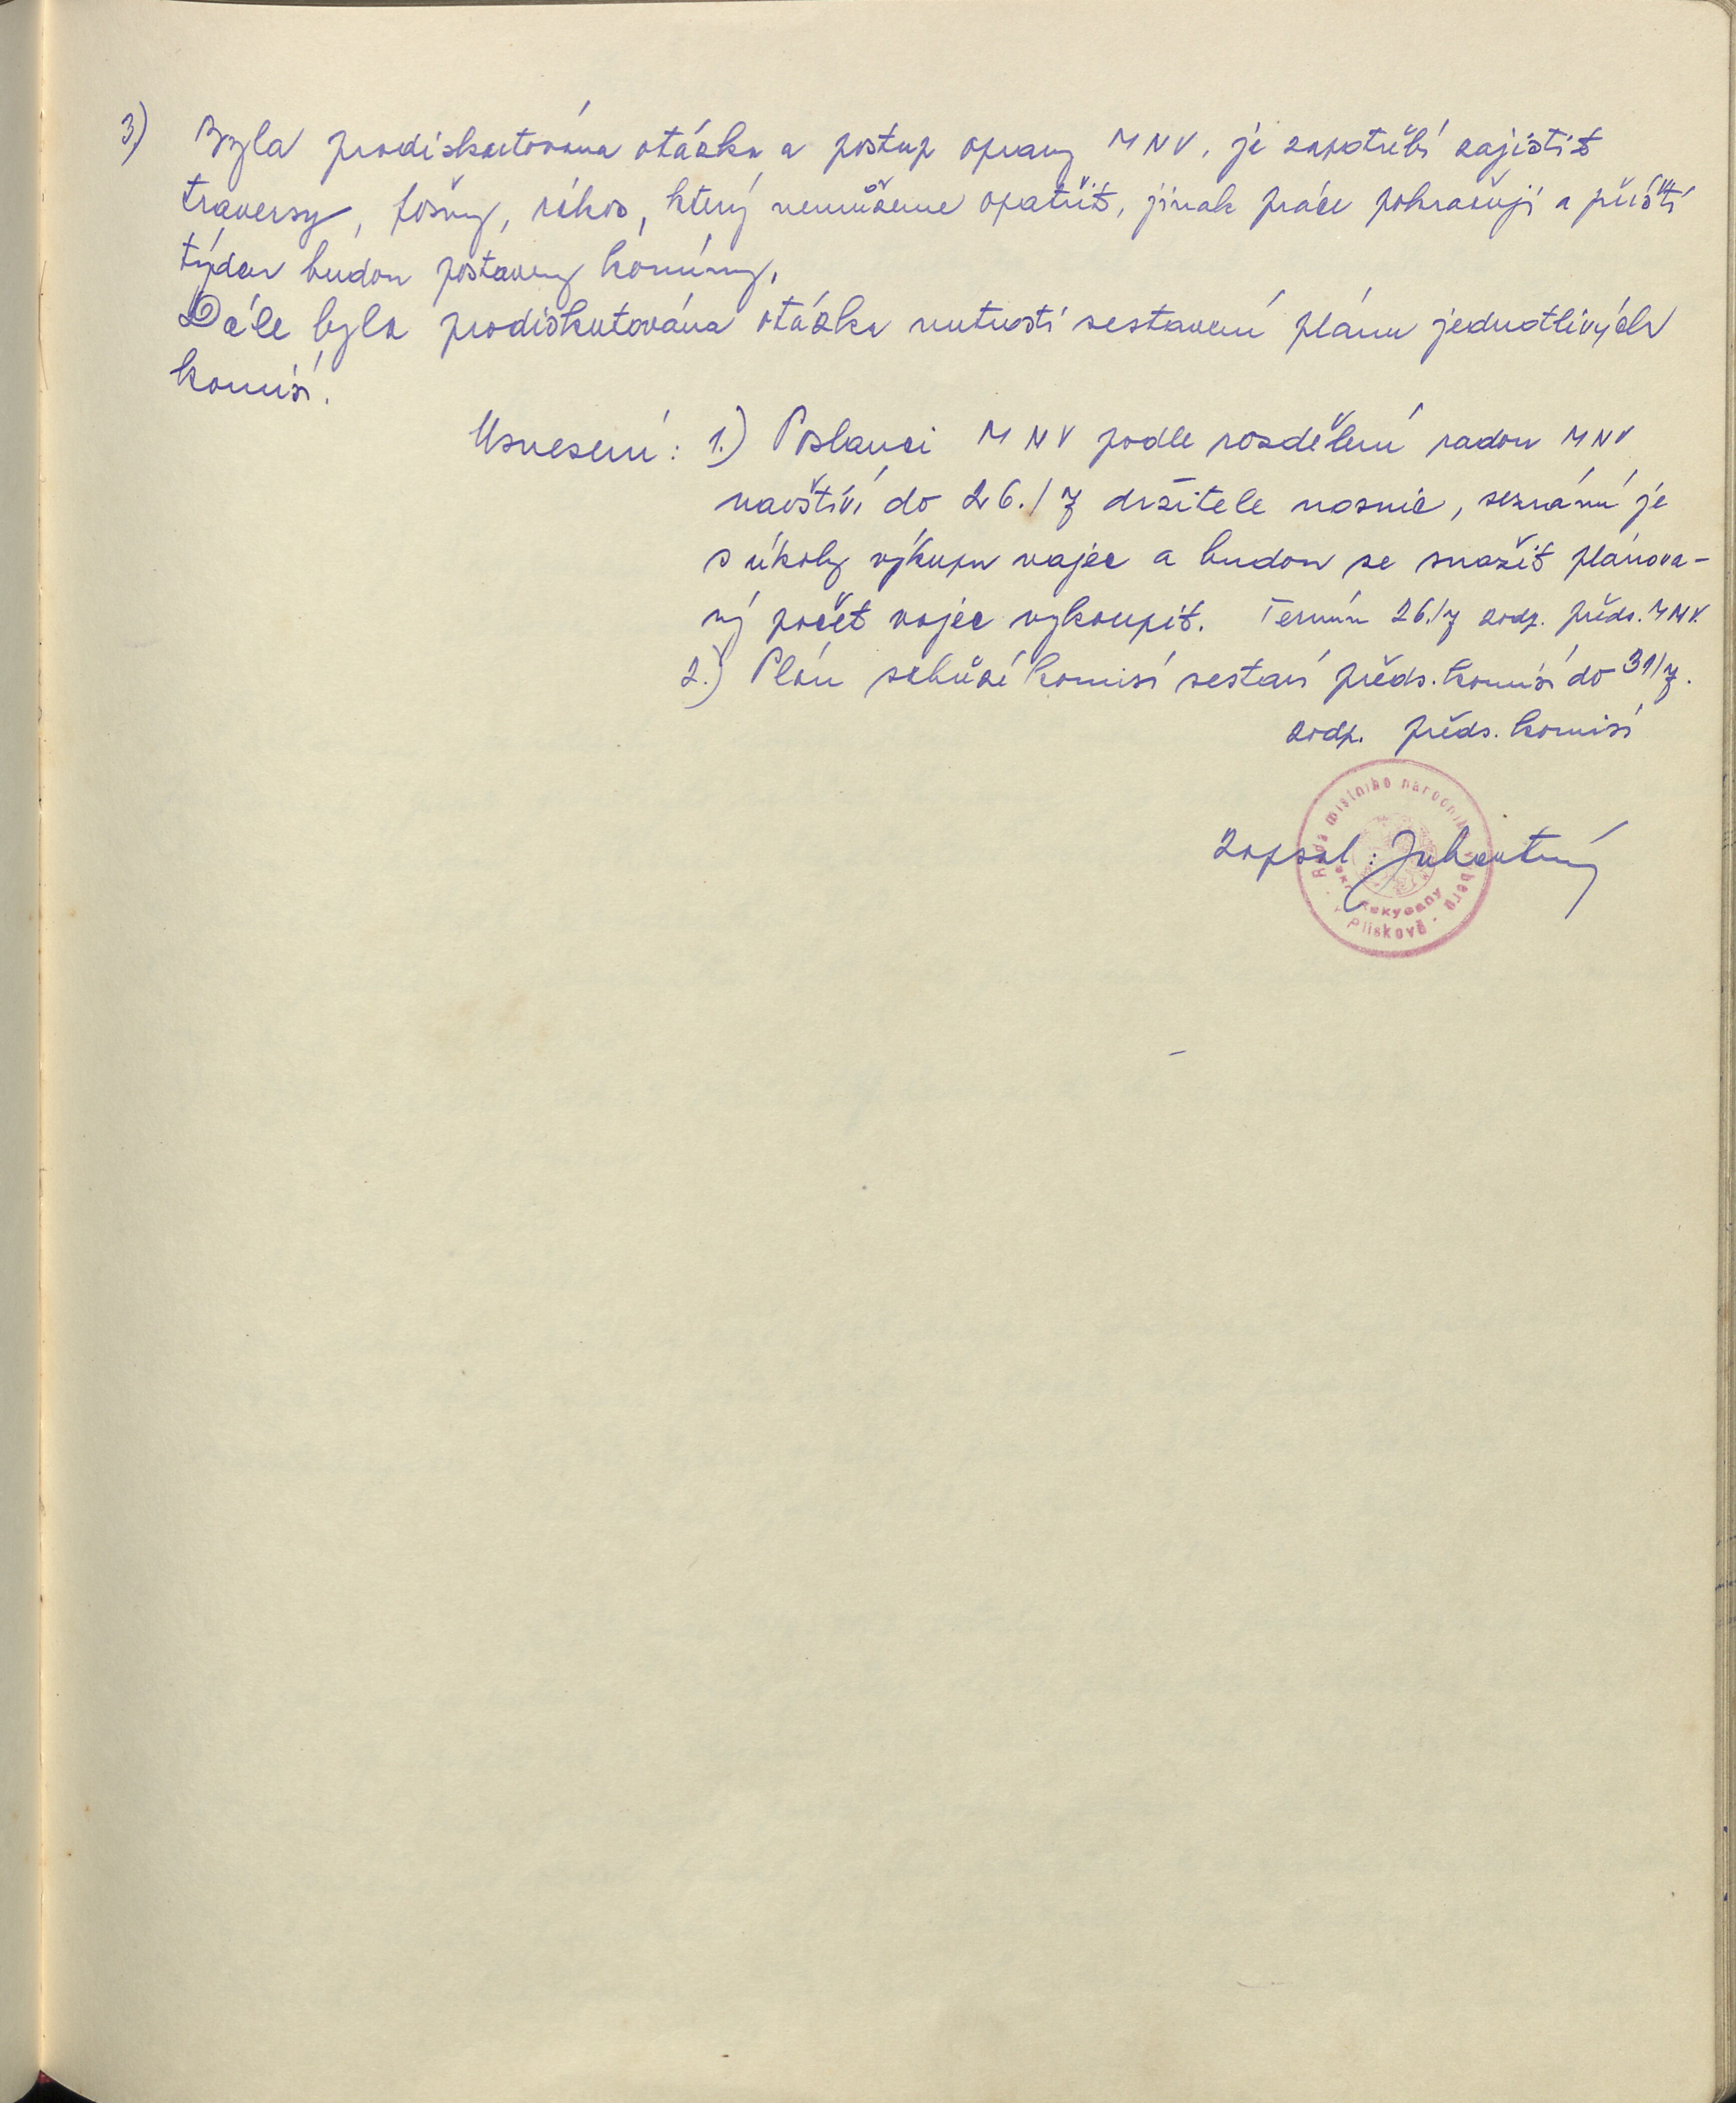 3) Byla prodiskutována otázka a postup opravy MNV, je zapotřebí zajistit
traversy, fošny, rákos, který nemůžeme opatřit, jinak práce pokračují a příští
týden budou postaveny komíny.
Dále byla prodiskutována otázka nutnosti sestavení plánu jednotlivých
komisí.
Usnesení: 1.) Poslanci MNV podle rozdělení radou MNV
navštíví do 26./7 držitele nosnic, seznámí je
s úkoly výkupu vajec a budou se snažit plánova-
ný počet vajec vykoupit. Termín 26./7 zodp. předs. MNV.
2.) Plán schůzí komisí sestaví předs. komisí do 31/7.
zodp. předs. komisí
Rada místního národního výboru
v Plískově
Zapsal: